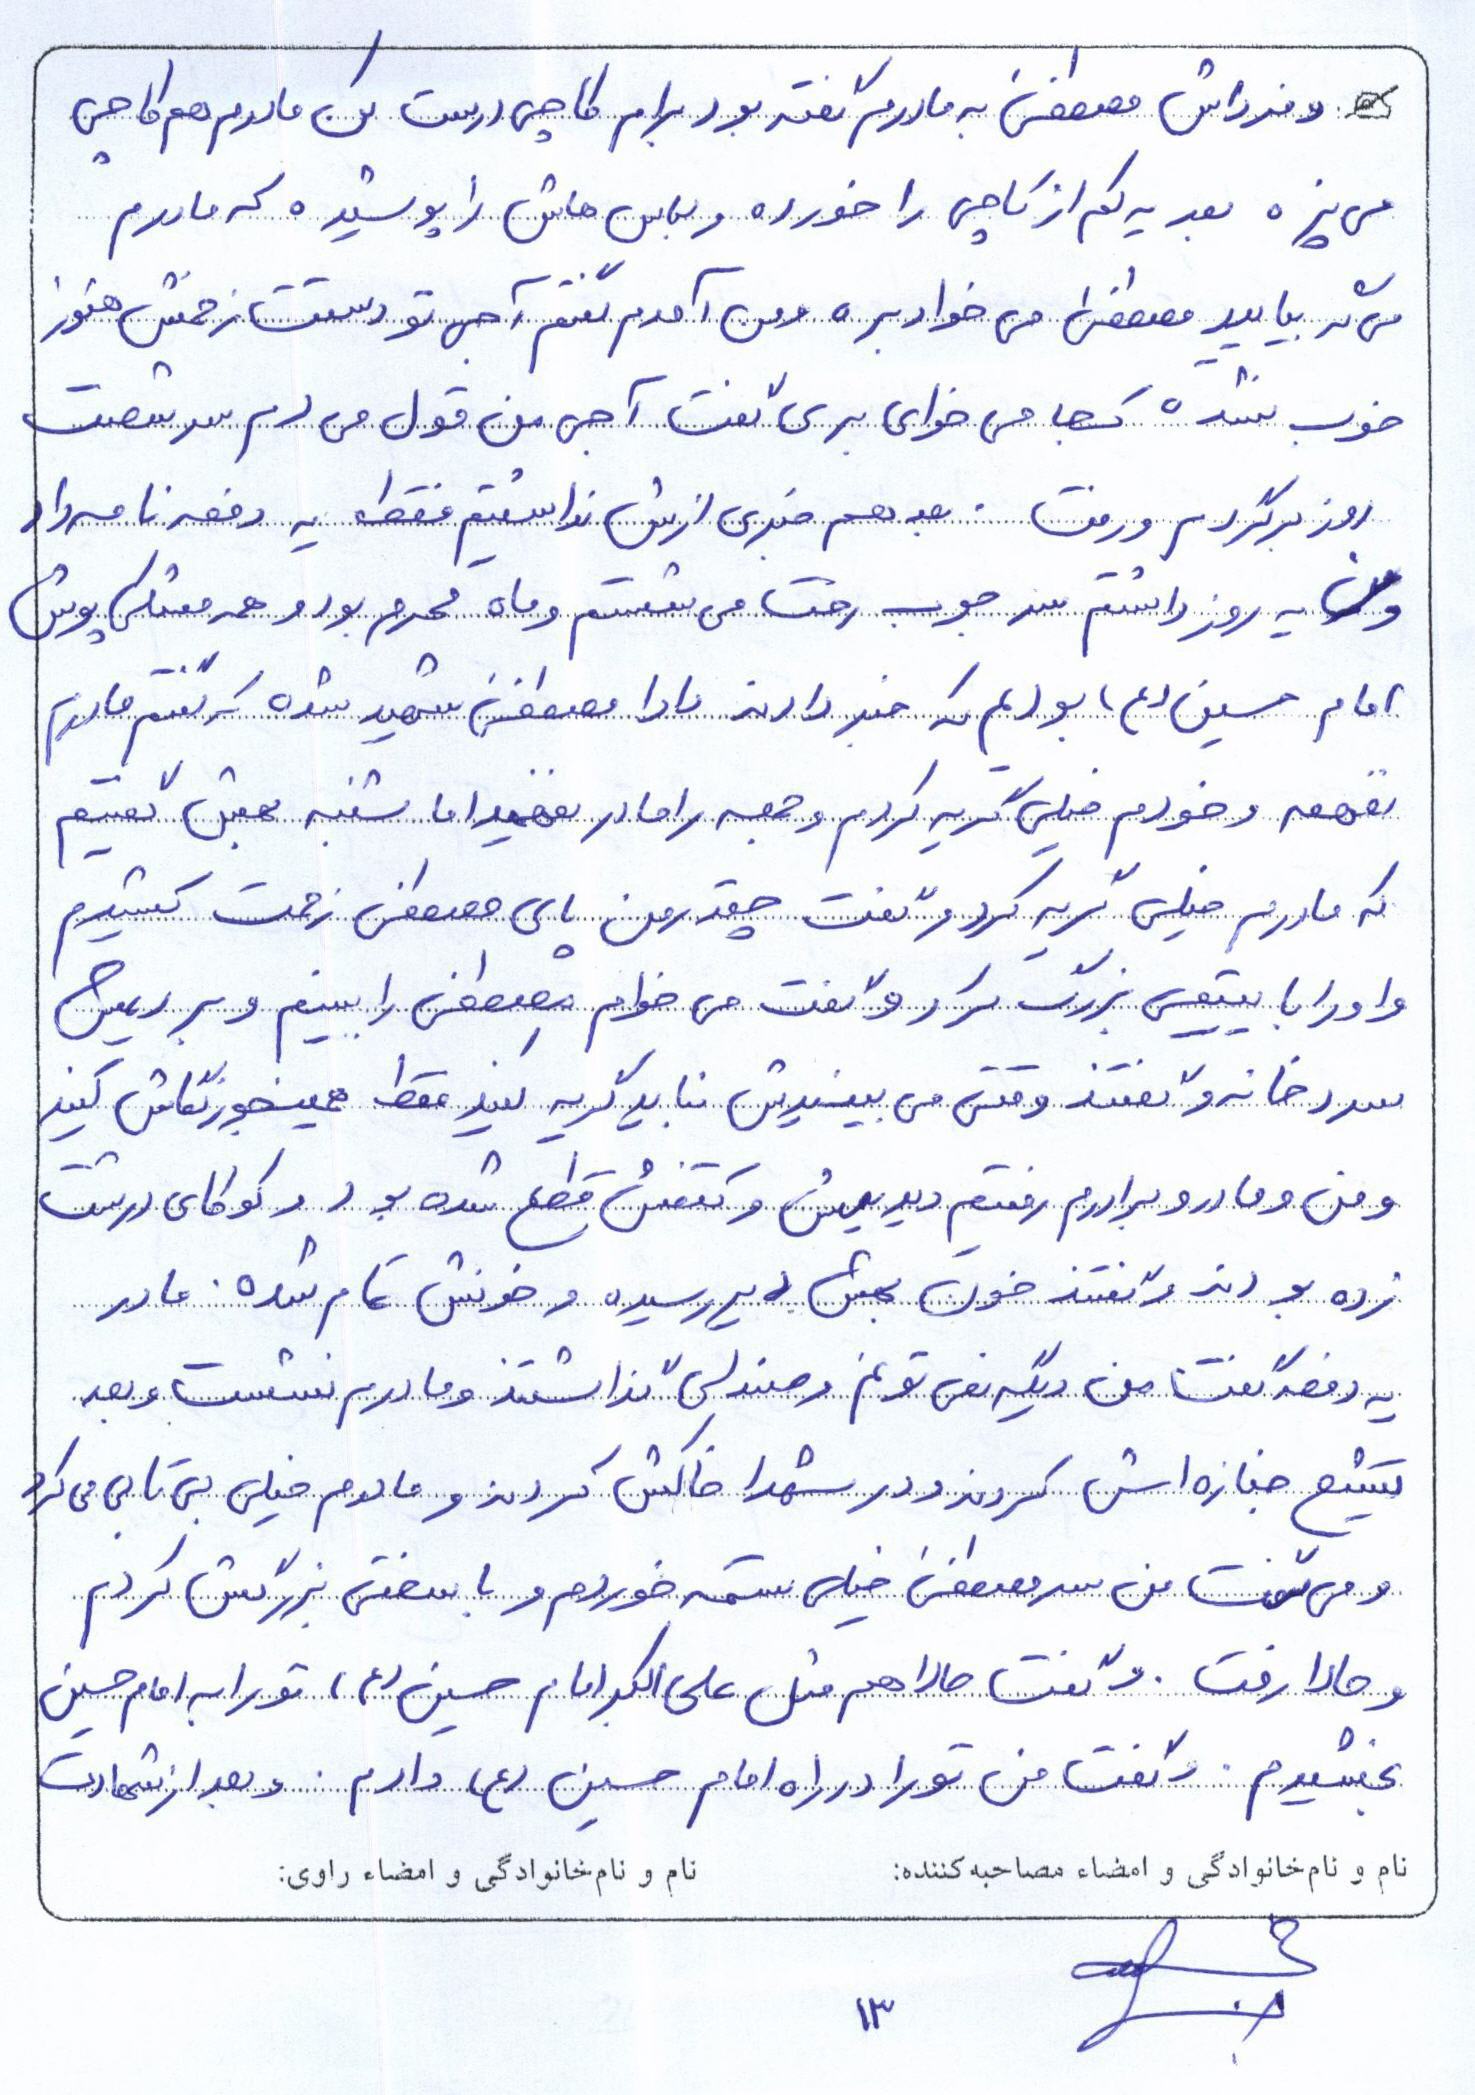 و فرداش مصطفی به مادرم گفته بود برام کاچی درست کن مادرم هم کاچی
می پزه بعد یه کم از کاچی را خورده و لباس هاش را پوشیده که مادرم
می گه بیایید مصطفی می خواد بره و من آمدم گفتم آجی تو دستت زخمش هنوز
خوب نشده کجا می خوای بری گفت آجی من قول می دم سر شصت
روز برگردم و رفت . بعد هم خبری ازش نداشتیم فقط یه دفعه نامه داد
و من یه روز داشتم سر جوب رخت می شستم و ماه محرم بود و همه مشکی پوش
امام حسین (ع) بودیم که خبر دادند دادا مصطفی شهید شده که گفتم مادرم
نفهمه و خودم خیلی گریه کردم و جمعه را مادر نفهمید اما شنبه بهش گفتیم
که مادرم خیلی گریه کرد و گفت چقدر من پای مصطفی زحمت کشیدم
و او را با یتیمی بزرگ کردم و گفت می خوام مصطفی را ببینم و بردیمش
سردخانه و گفتند وقتی می بینیدش نباید گریه کنید فقط همینجور نگاش کنید
و من و مادر و برادرم رفتیم دیدیمش و کتفش قطع شده بود و کوکای درشت
زده بودند و گفتند خون بهش دیر رسیده و خونش تمام شده . مادر
یه دفعه گفت من دیگه نمی تونم و صندلی گذاشتند و مادرم نشست و بعد
تشیع جنازه اش کردند و در شهدا خاکش کردند و مادرم خیلی بی تابی می کرد
و می گفت من سر مصطفی خیلی ستمه خوردم و با سختی بزرگش کردم
و حالا رفت . و گفت حالا هم مثل علی اکبر امام حسین (ع) تو را به امام حسین
بخشیدم . و گفت من تو را در راه امام حسین (ع) دادم . و بعد از شهادت
نام و نام‌خانوادگی و امضاء مصاحبه‌کننده: نام و نام‌خانوادگی و امضاء راوی:
۱۳